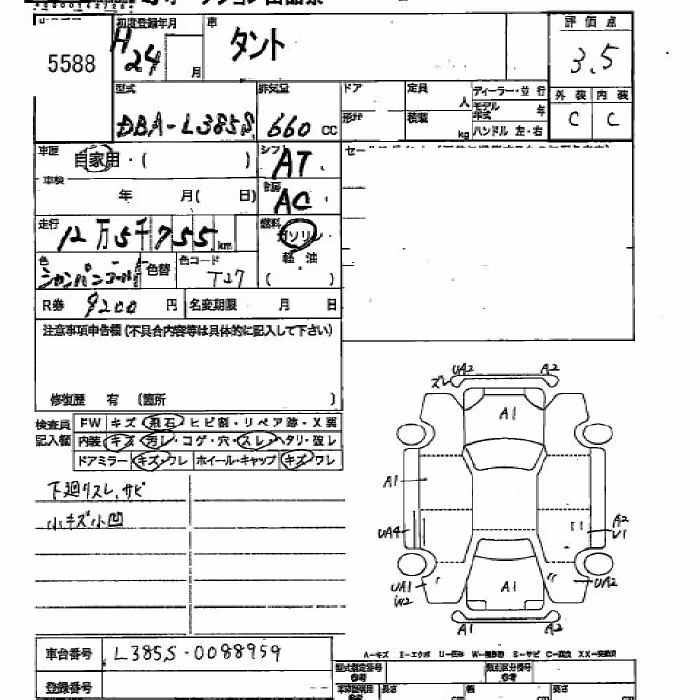 5588
初度登録年月 車 評価点
H24 月 タント 3.5
型式 排気量 ドア 定員 人 ディーラー・並行
モデル年式 年
外装 内装
DBA-L385S 660 cc 形状 積載 kg ハンドル 左・右 C C
車歴 自家用・( ) シフト AT
車検 年 月( 日) 冷房 AC
走行 12万5千755 km 燃料 ガソリン
軽油
( )
色 シャンパンゴールド 色替 色コード T27
R券 9200 円 名変期限 月 日
注意事項申告欄(不具合内容等は具体的に記入して下さい)
修復歴 有 〔箇所 〕
検査員記入欄
FW キズ・飛石・ヒビ割・リペア跡・X要
内装 キズ・汚レ・コゲ・穴・スレ・ヘタリ・破レ
ドアミラー キズ・ワレ ホイール・キャップ キズ・ワレ
下廻クスレ、サビ
小キズ小凹
UA2 A2
ズレ
A1
A1
A2
UA4 V1
UA1 A1 UA2
W2
A1 A2
A-キズ E-エクボ U-凹み W-補修跡 S-サビ C-腐食 XX-交換済
車台番号 L385S-0088959
型式指定番号 類別区分番号
登録番号
長さ 幅 高さ